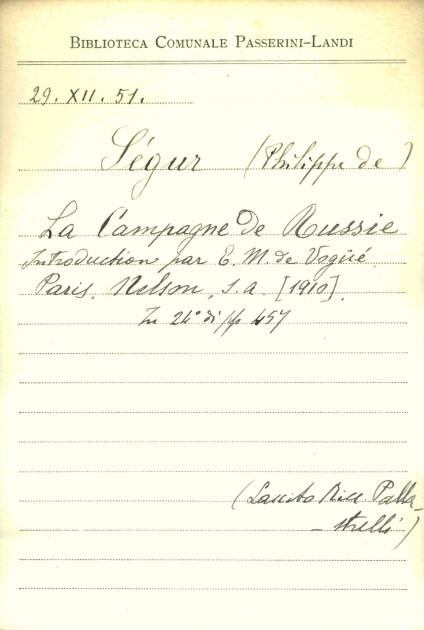 BIBLIOTECA COMUNALE PASSERINI-LANDI
29. XII. 51.
Ségur (Philippe de)
La Campagne de Russie
Introduction par E. M. de Vogüé.
Paris, Nelson, s. a. [1910].
In 24° di pp 457
(Lascito Palla-
strelli)